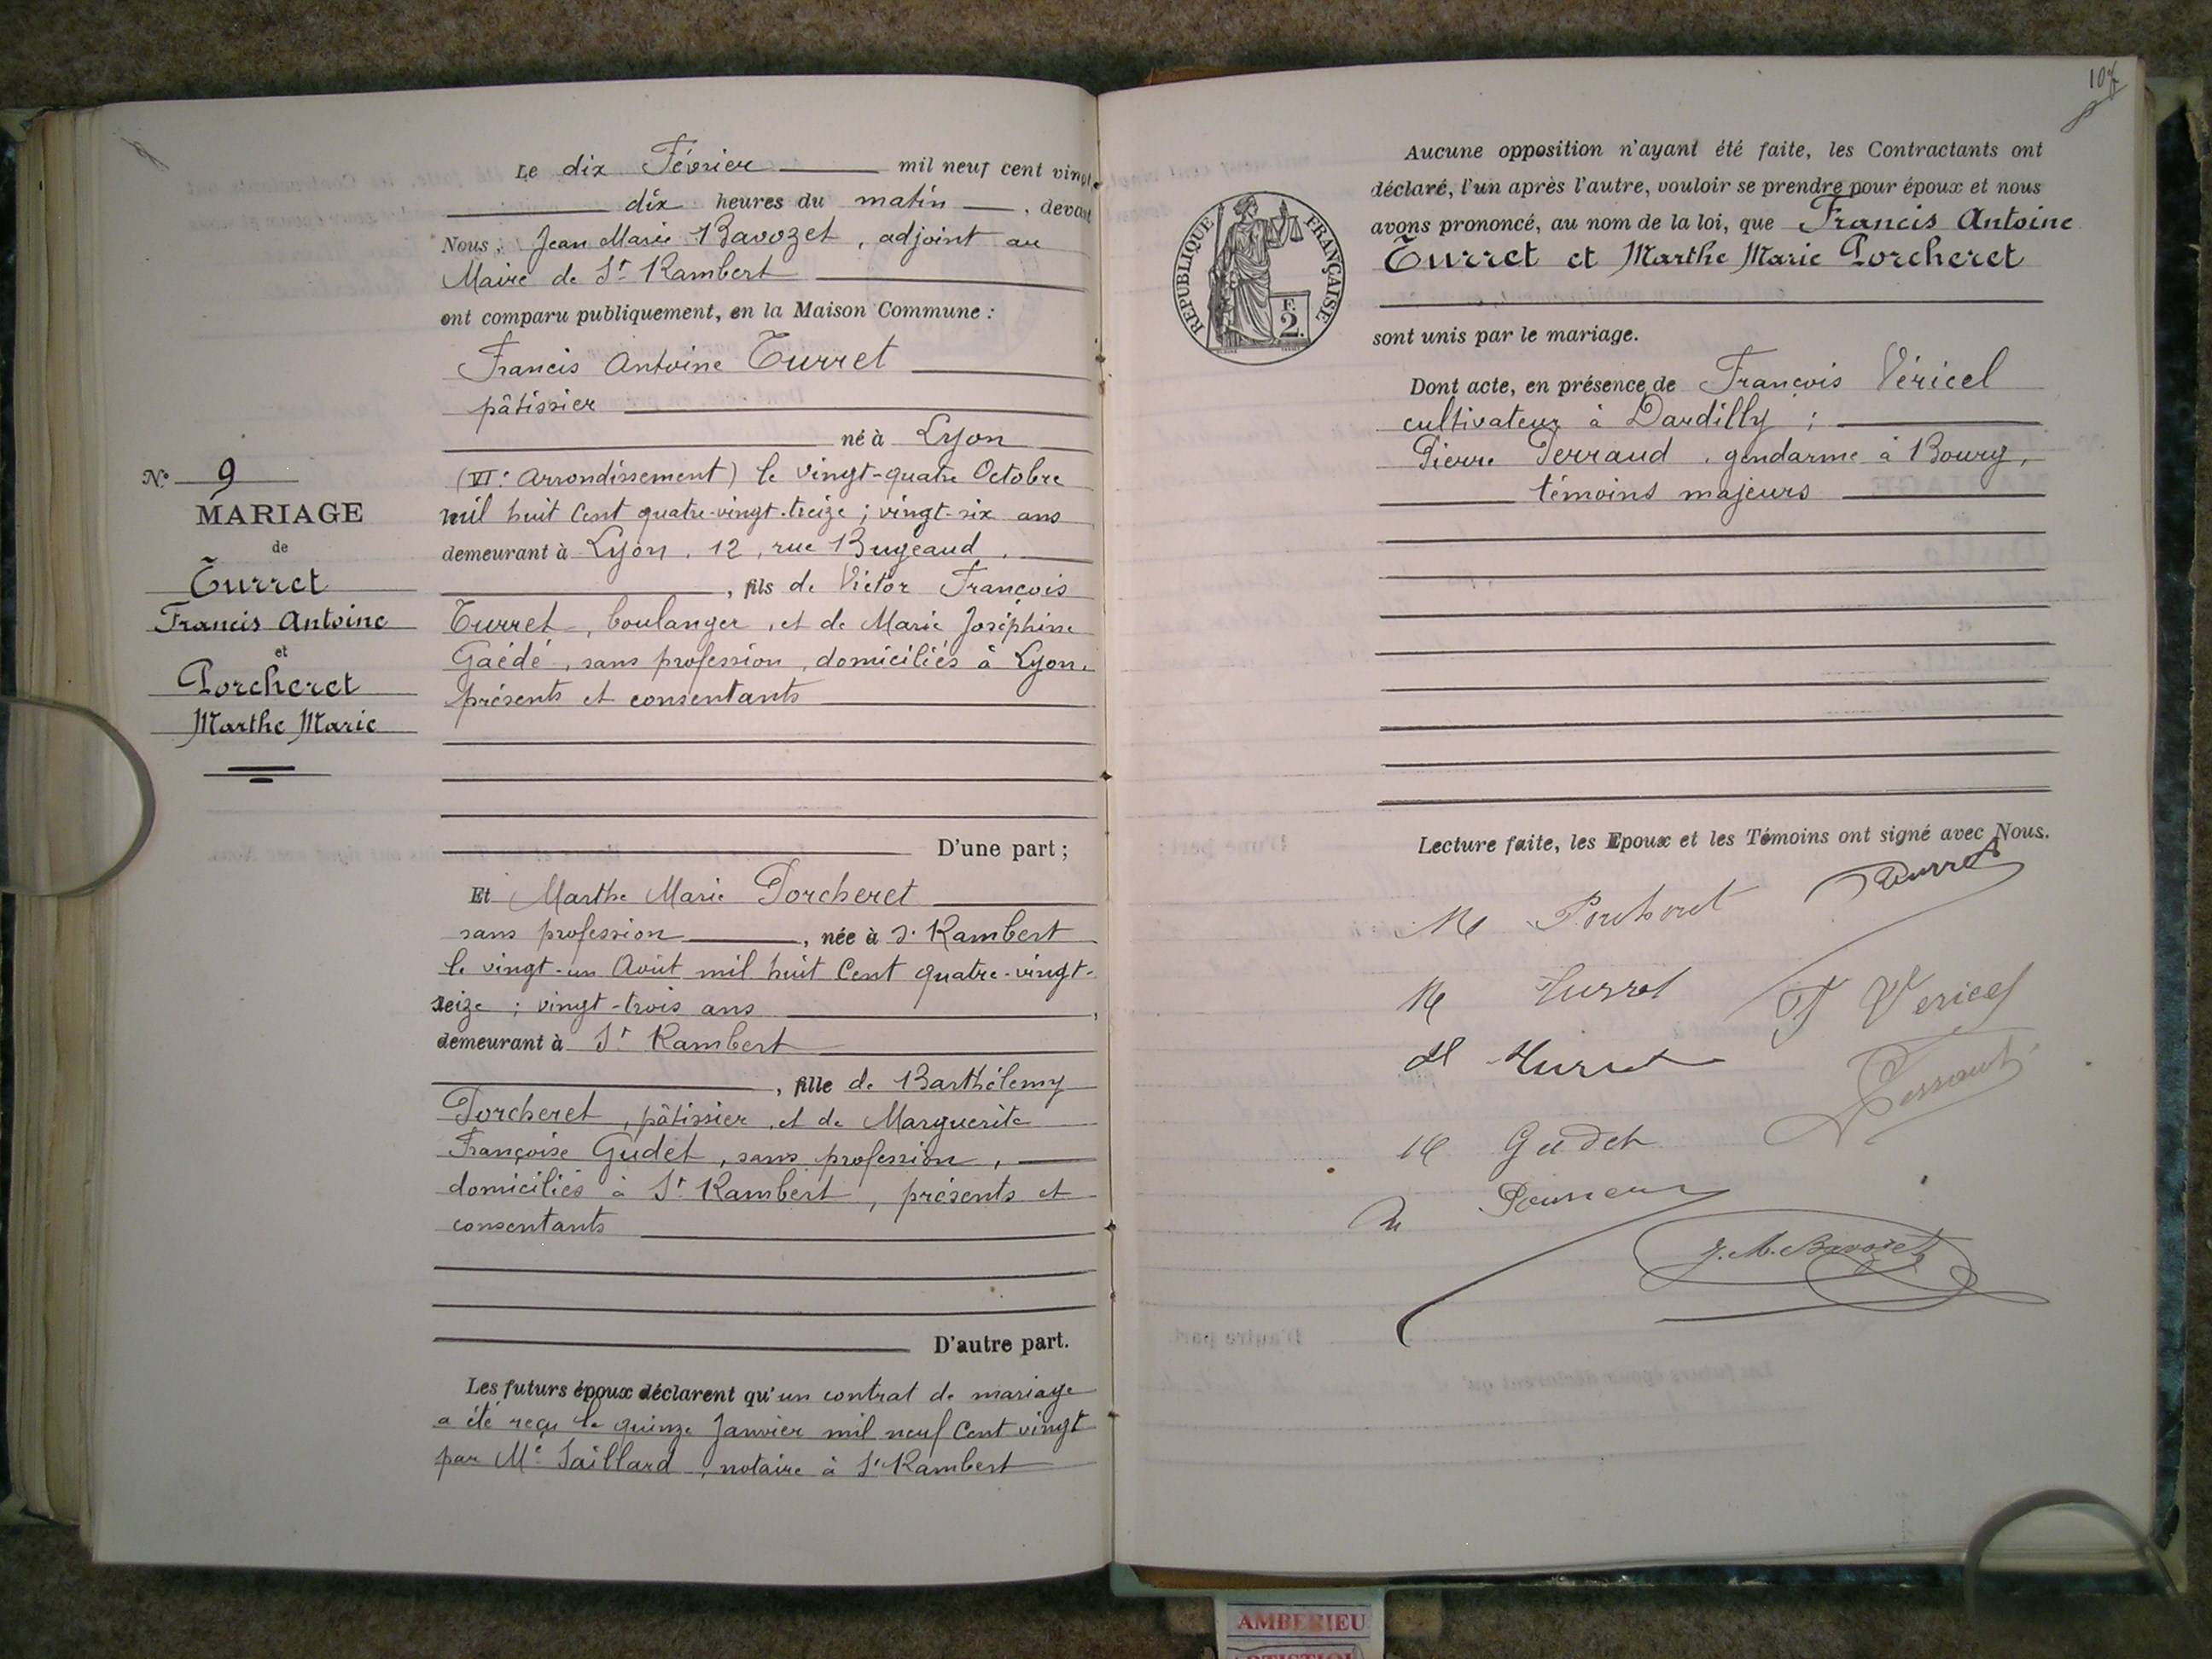 Le dix Février mil neuf cent vingt
dix heures du matin, devant
Nous, Jean Marie Bavozet, adjoint au
Maire de St Rambert
ont comparu publiquement, en la Maison Commune :
Francis Antoine Turret
pâtissier
né à Lyon
(VIe Arrondissement) le vingt-quatre Octobre
mil huit Cent quatre-vingt-treize ; vingt-six ans
demeurant à Lyon, 12, rue Bugeaud,
, fils de Victor François
Turret, boulanger, et de Marie Joséphine
Gaédé, sans profession, domiciliés à Lyon,
présents et consentants
D'une part ;
Et Marthe Marie Porcheret
sans profession, née à St Rambert
le vingt-un Août mil huit Cent quatre-vingt-
seize ; vingt-trois ans,
demeurant à St Rambert
, fille de Barthélemy
Porcheret, pâtissier, et de Marguerite
Françoise Gudet, sans profession,
domiciliés à St Rambert, présents et
consentants
D'autre part.
Les futurs époux déclarent qu'un contrat de mariage
a été reçu le quinze Janvier mil neuf Cent vingt
par Me Saillard, notaire à St Rambert
No 9
MARIAGE
de
Turret
Francis Antoine
et
Porcheret
Marthe Marie
107
REPUBLIQUE FRANÇAISE
F.
2.
Aucune opposition n'ayant été faite, les Contractants ont
déclaré, l'un après l'autre, vouloir se prendre pour époux et nous
avons prononcé, au nom de la loi, que Francis Antoine
Turret et Marthe Marie Porcheret
sont unis par le mariage.
Dont acte, en présence de François Véricel
cultivateur à Dardilly ;
Pierre Perraud, gendarme à Bourg,
témoins majeurs
Lecture faite, les Epoux et les Témoins ont signé avec Nous.
M Porcheret Turret
M Turret F Vericel
Turret
M Gudet
J. M. Bavozet
AMBERIEU